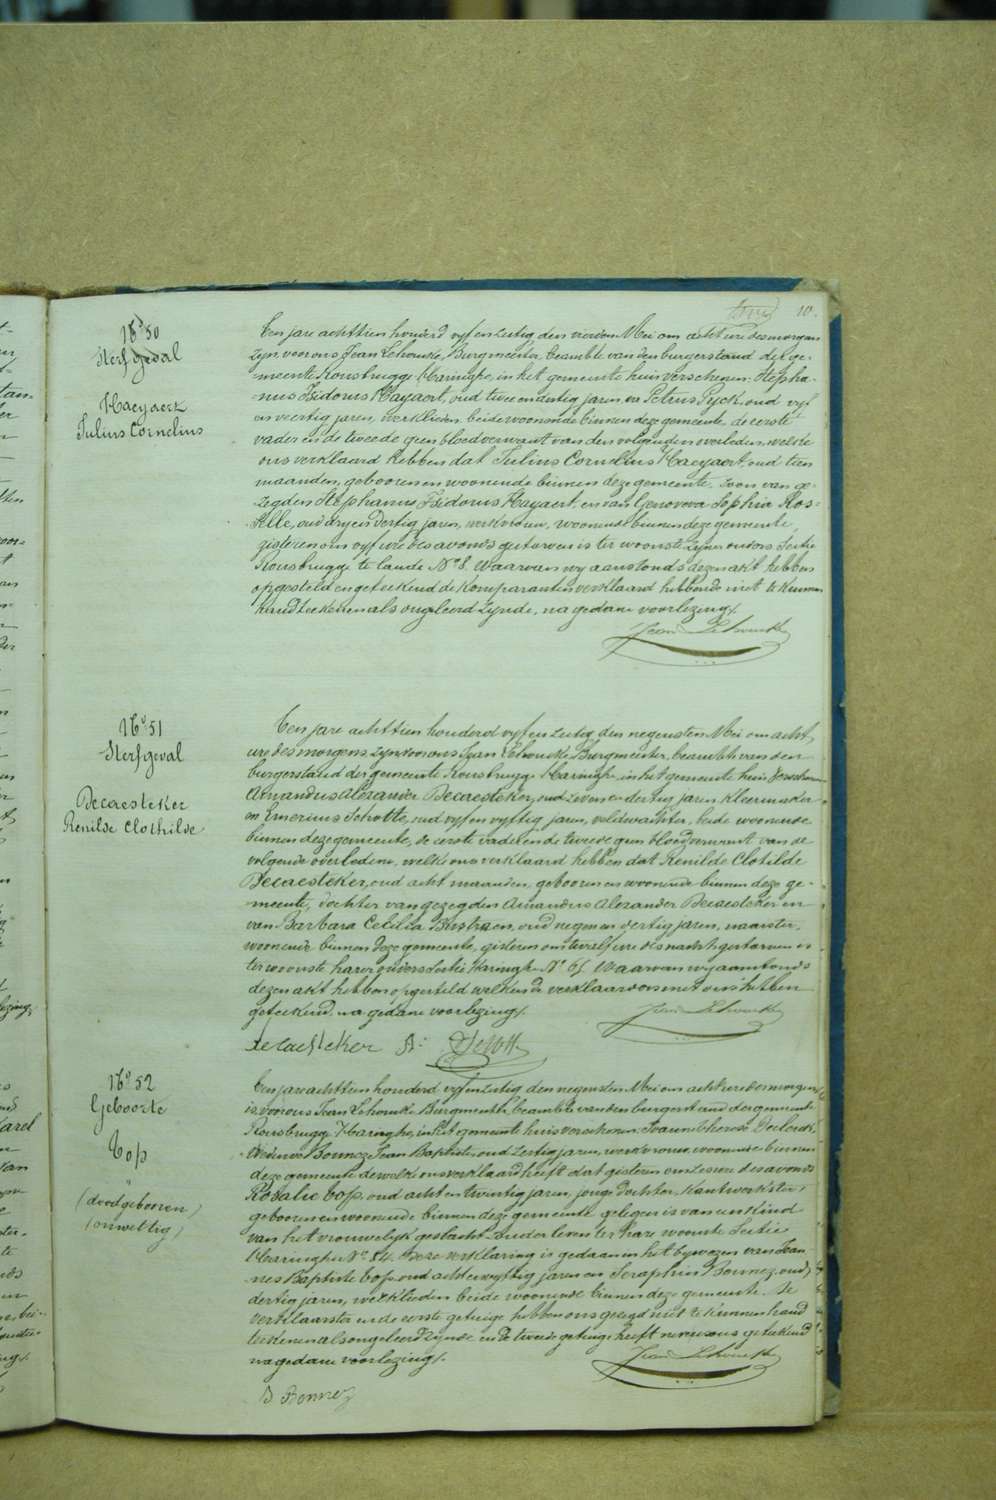 10.
N° 50
Sterfgeval
Haeyaert
Julius Cornelius
Ten jare achttien honderd vyf en zestig den vierden Mei om acht ure des morgens
zyn voor ons Jean Lehoucke, Burgmeester, beambte van den burgerstand der ge-
meente Rousbrugge Haringhe, in het gemeente huis verschenen: Stepha-
nus Isidorus Haeyaert, oud twee en dertig jaren en Petrus Ryck, oud vyf
en veertig jaren, werklieden beide woonende binnen deze gemeente, de eerste
vader en de tweede geen bloedverwant van den volgenden overleden, welke
ons verklaard hebben dat Julius Cornelius Haeyaert, oud tien
maanden, geboren en woonende binnen deze gemeente, zoon van ge-
zegden Stephanus Isidorus Haeyaert en van Genoveva Sophia Ros-
selle, oud dry en dertig jaren, werkvrouw, woonende binnen deze gemeente,
gisteren om vyf ure des avonds gestorven is ter woonste zyner ouders Sectie
Rousbrugge te lande N° 8. Waarvan wy aanstonds dezen akt hebben
opgesteld en geteekend de komparanten verklaard hebbende niet te kunnen
handteekenen als ongeleerd zynde, na gedane voorlezing.
Jean Lehoucke
N° 51
Sterfgeval
Decaesteker
Renilde Clothilde
Ten jare achttien honderd vyf en zestig den negensten Mei om acht
ure des morgens zyn voor ons Jean Lehoucke Burgmeester, beambte van den
burgerstand der gemeente Rousbrugge Haringhe, in het gemeente huis verschenen
Amandus Alexander Decaesteker, oud zeven en dertig jaren kleermaker
en Emerius Schotte, oud vyf en vyftig jaren, veldwachter, beide woonende
binnen deze gemeente, de eerste vader en de tweede geen bloedverwant van de
volgende overledene, welke ons verklaard hebben dat Renilde Clotilde
Decaesteker, oud acht maanden, geboren en woonende binnen deze ge-
meente, dochter van gezegden Amandus Alexander Decaesteker en
van Barbara Cecilia Bustraen, oud negen en dertig jaren, naaister,
woonende binnen deze gemeente, gisteren om twaalf ure des nachts gestorven is
ter woonste harer ouders Sectie Haringhe N° 65. Waarvan wy aanstonds
dezen akt hebben opgesteld welken de verklaarders met ons hebben
geteekend, na gedane voorlezing.
Jean Lehoucke
decaesteker A:
N° 52
Geboorte
Top
(doodgeboren)
(onwettig)
Ten jare achttien honderd vyf en zestig den negensten Mei om acht ure des morgens
is voor ons Jean Lehoucke Burgmeester, beambte van den burgerstand der gemeente
Rousbrugge Haringhe, in het gemeente huis verschenen: Joanna Theresa Declerck,
Weduwe Bonnez Jean Baptiste, oud zestig jaren, werkvrouw, woonende binnen
deze gemeente dewelke ons verklaard heeft dat gisteren om zes ure des avonds
Rosalie Top, oud acht en twintig jaren, jonge dochter, kantwerkster,
geboren en woonende binnen deze gemeente gelegen is van een kind
van het vrouwelyk geslacht zonder leven ter hare woonste Sectie
Haringhe N° 54. Deze verklaring is gedaan in het bywezen van Joan-
nes Baptiste Top, oud acht en vyftig jaren en Seraphin Bonnez, oud
dertig jaren, werklieden beide woonende binnen deze gemeente. De
verklaarster en de eerste getuige hebben ons gezegd niet te kunnen hand
teekenen als ongeleerd zynde en de tweede getuige heeft nevens ons geteekend
na gedane voorlezing.
Jean Lehoucke
S Bonnez